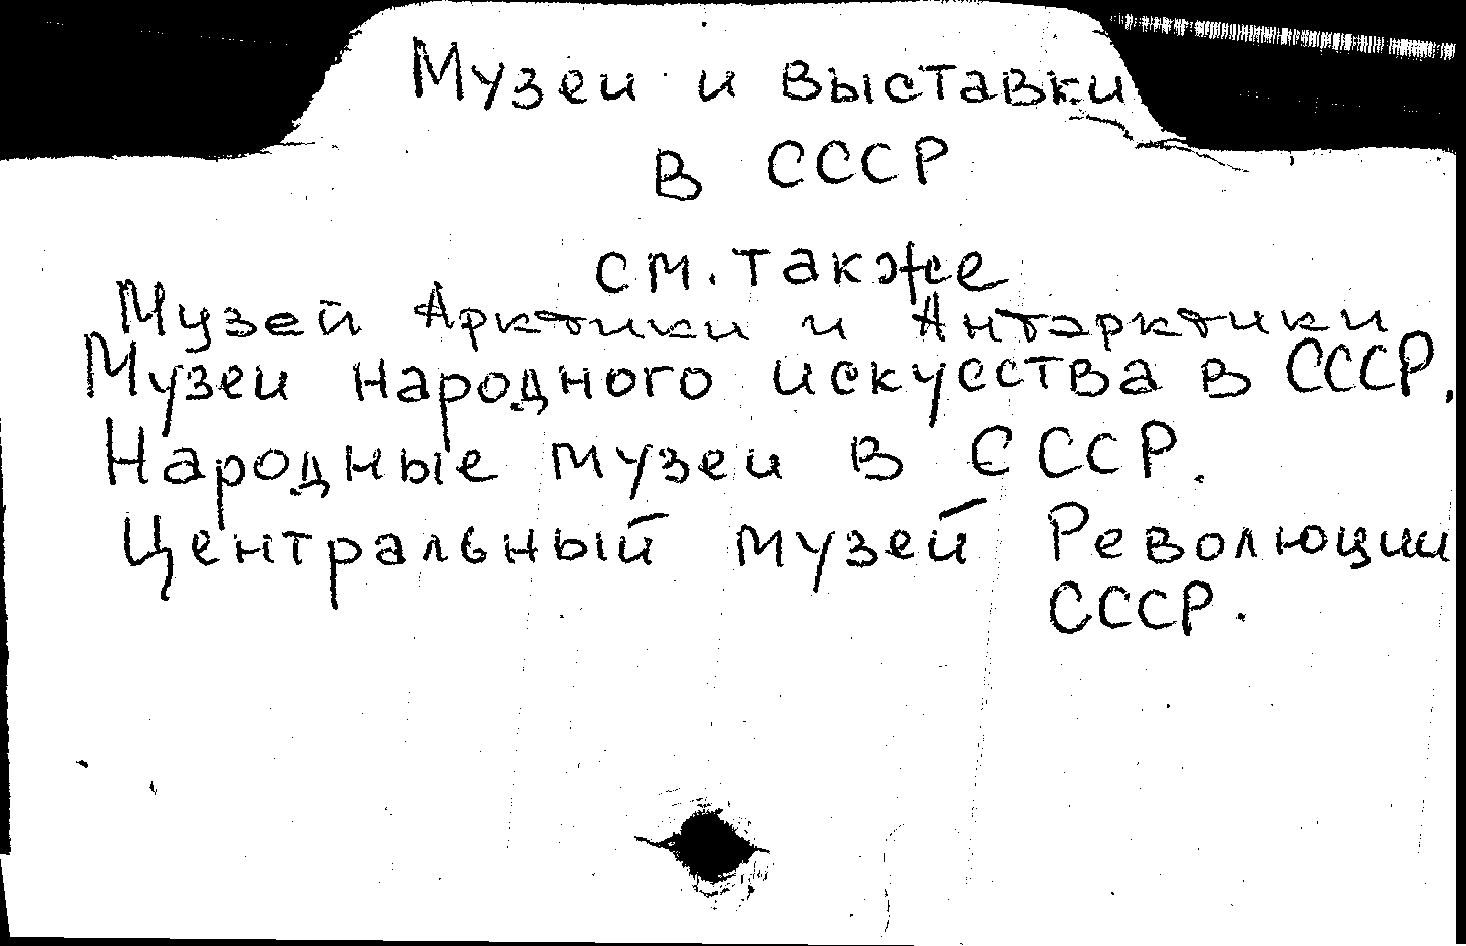 Музеи и выставки
в СССР
см. также
Музей Арктики и Антарктики
Музеи народного искусства в СССР.
Народные музеи в СССР.
Центральный музей Революции
СССР.